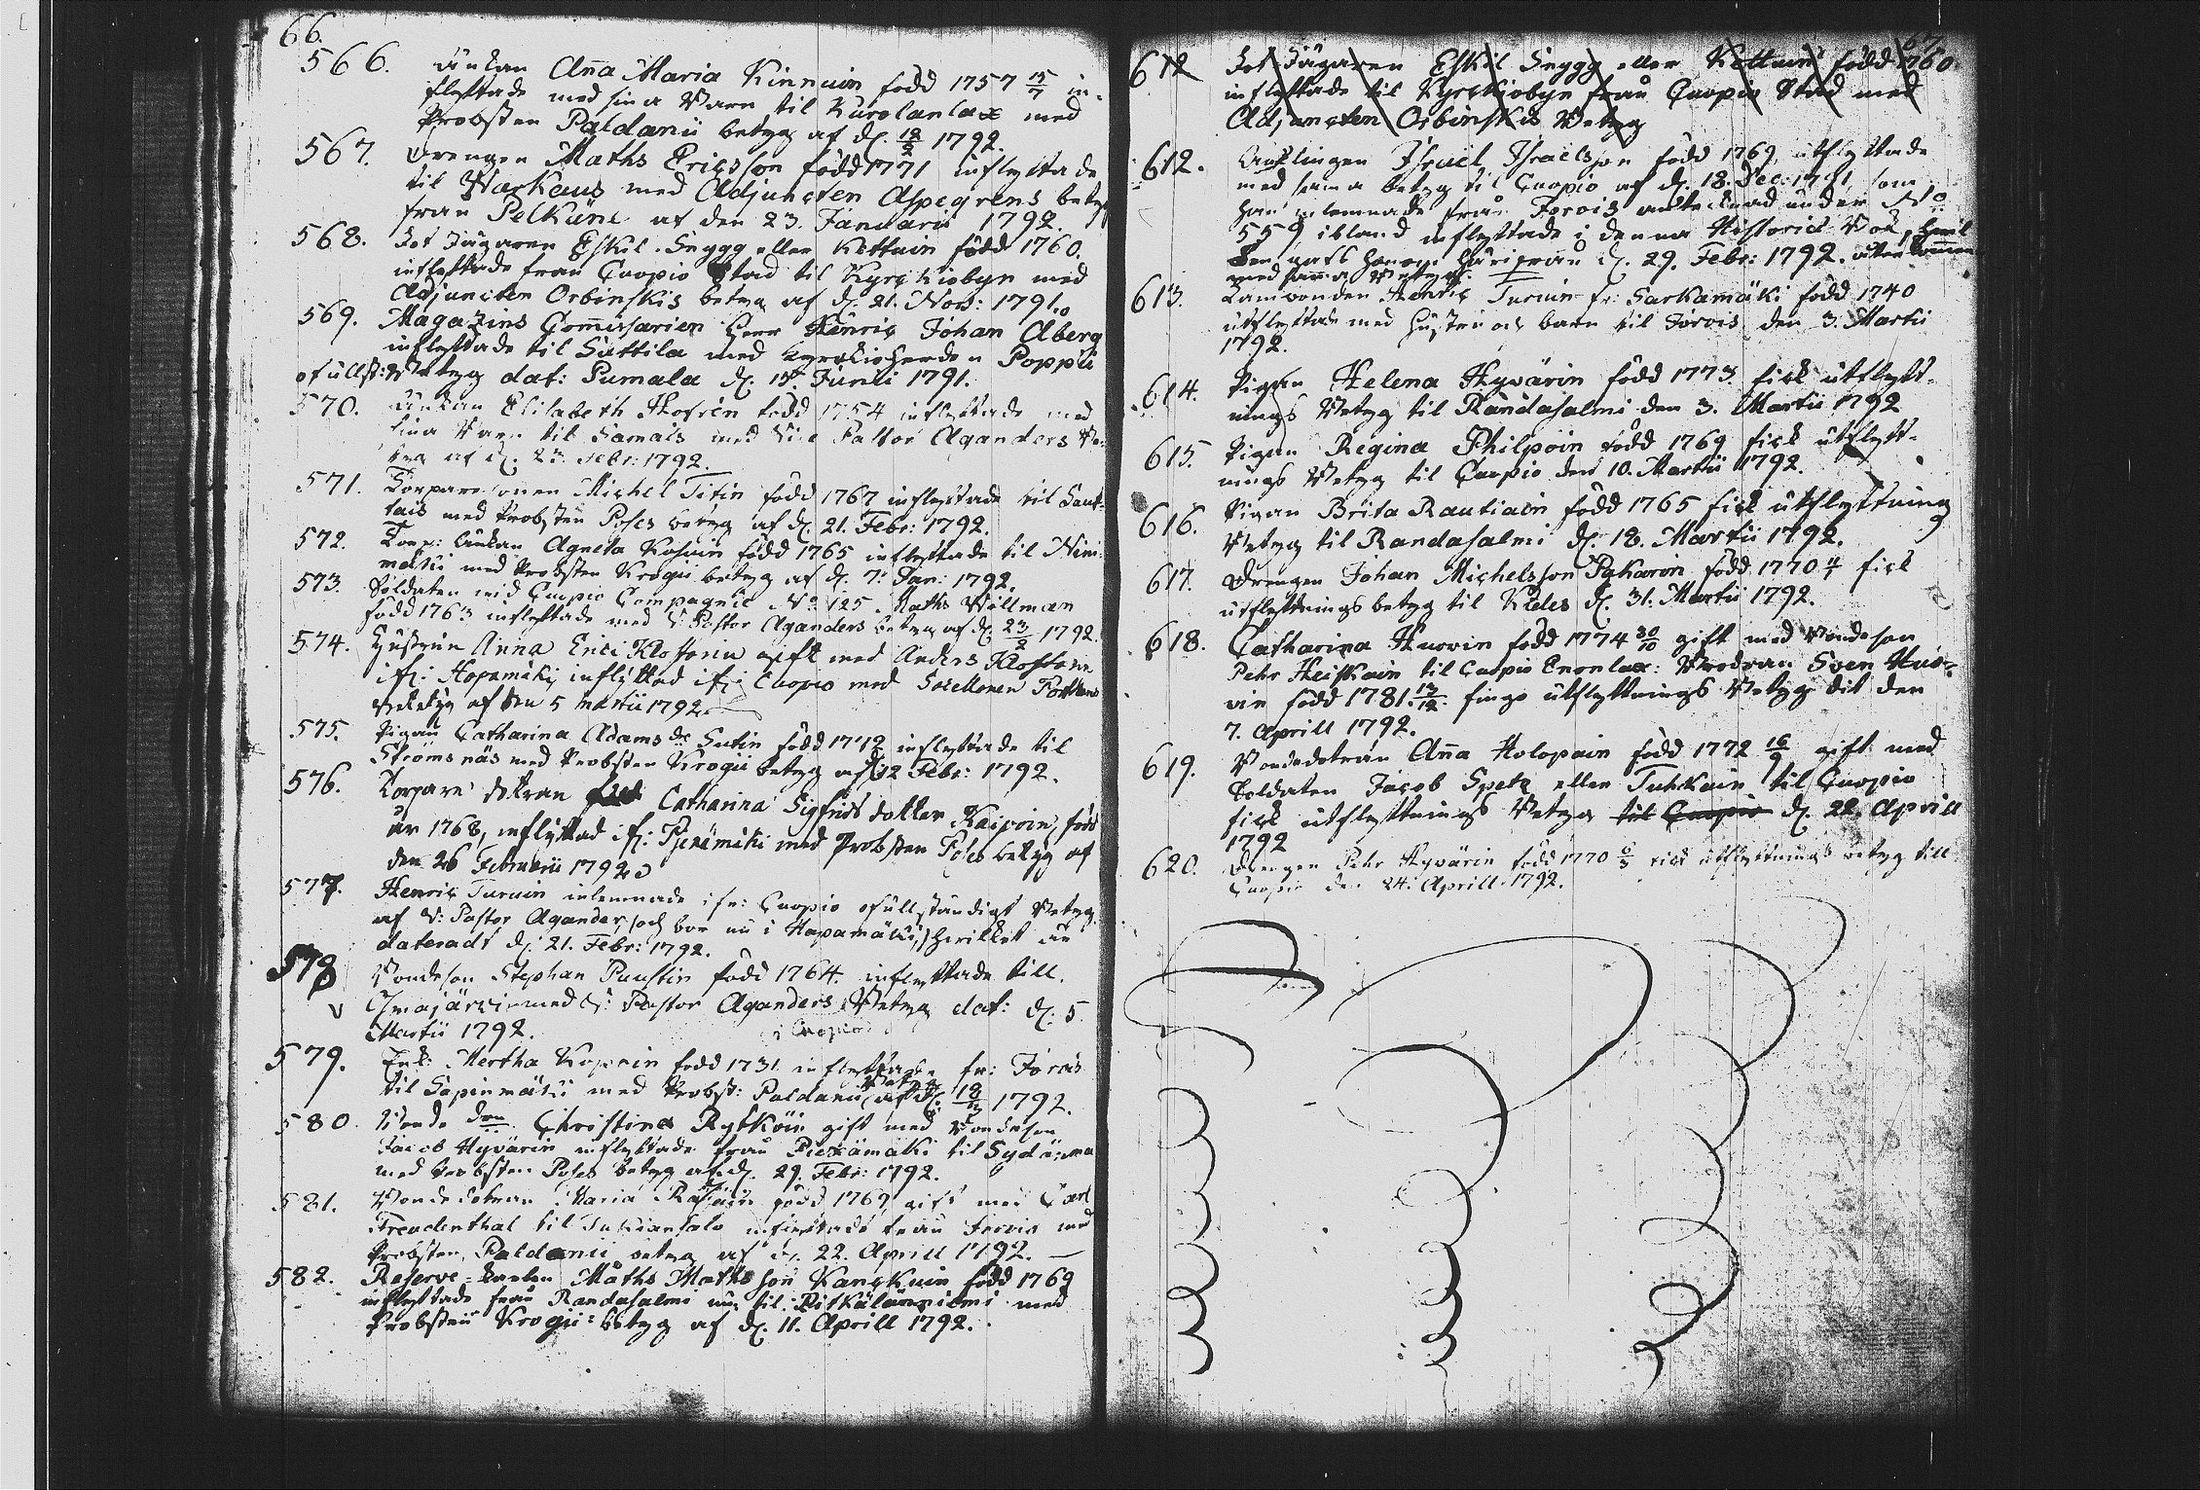 66.
566. Änkan Anna Maria Kinnuin född 1757 15/7 in-
flyttade med sina Barn til Kurolanlax med
Probsten Paldanii betyg af d. 12/2 1792.
567. Drengen Maths Ericsson född 1771 inflyttade
til Warkaus med Adjuncten Aspegrens betyg
från Pelkäne af den 23. Januarii 1792.
568. Fot Jägaren Eskil Snygg eller Kettuin född 1760.
inflyttade från Cuopio Stad til Kyrckiobyn med
Adjuncten Orbinskis betyg af d. 21. Nov: 1791.
569. Magazins Commissarien Herr Henric Johan Aberg
inflyttade til Suttila med Kyrckioherden Poppii
ofullst: Betyg dat: Pumala d. 15. Junii 1791.
570. Änkan Elisabeth Kosoin född 1754 inflyttade med
sina Barn til Samais med Vice Pastor Aganders Be-
tyg af d. 23. Febr: 1792.
571. Torpare sonen Michel Titin född 1767 inflyttade til
med Probsten Poses betyg af d. 21. Febr: 1792.
572. Torp: Änkan Agneta Kosuin född 1765 inflyttade til Nini-
mäki med Probsten Krogii betyg af d. 7. Jan: 1792.
573. Soldaten vid Cuopio Compagnie No 125 Maths Wällman
född 1763 inflyttade med V: Pastor Aganders betyg af d. 23/2 1792.
574. Hustrun Anna Erici gift med Anders
ifr: Hapamäki inflyttad ifr: Cuopio med
Betyg af den 5 Martii 1792.
575. Pigan Catharina Adams dr Sutin född 1772 inflyttade til
Strömsnäs med Probsten Krogii betyg af 12 Febr: 1792.
576. Torpare dotran Catharina Sigfrids dotter Kaipoin, född
år 1768, inflyttad ifr: Pjexämäki med Probsten Poses betyg af
den 26 Februarii 1792
577. Henric Turuin inlemnade ifr: Cuopio ofullständigt Betyg
af V: Pastor Agander, (och bor nu i Hapamäki,) hvilket är
dateradt d. 21. Febr: 1792.
578 Bondeson Stephan Puustin född 1764. inflyttade till
Osmajärvi med V: Pastor Aganders Betyg dat: d. 5
i Cuopio
Martii 1792.
579. Enk: Mertha Kopoin född 1731 inflyttade fr: Jorois
til Sapinmäki med Probst: Paldanii Betyg af d. 18/3 1792.
580. Bonde d:n Christina Rytköin gift med Bondeson
Jacob Hyvärin inflyttade från Piexämäki til Sydänma
med Probsten Poses betyg af d. 29. Febr: 1792.
581. Bonde dotran Maria född 1769 gift med Carl
Freudenthal til inflyttade från Jorois med
Probsten Paldanii betyg af d. 22. Aprill 1792.
582. Reserve-Karlen Maths Mathsson Kangkuin född 1769
inflyttade från Randasalmi nu til med
Probsten Krogii betyg af d. 11. Aprill 1792.
67.
612 Fot Jägaren Eskil Snygg eller Kettuin född 1760.
inflyttade til Kyrckiobyn från Cuopio Stad med
Adjuncten Orbinskis Betyg
612. Israel Israelsson född 1769, utflyttade
med sama betyg til Cuopio af d. 18. Dec: 1791, som
han inlemnade från Jorois antecknad under No
559, ibland inflyttade i denna Historie Bok,
gafs honom härifrån d. 29. Febr: 1792.
med sama Betyg.
613. Landbonden Henric Turuin fr: Sarkamäki född 1740
utflyttade med Hustru och barn til Jorois den 3. Martii
1792.
614. Pigan Helena Hyvärin född 1773. fick utflytt-
nings Betyg til Randasalmi den 3. Martii 1792
615. Pigan Regina Philpoin född 1769 fick utflytt-
nings Betyg til Cuopio den 10. Martii 1792.
616. Pigan Brita Rautiain född 1765 fick utflyttning
Betyg til Randasalmi d. 18. Martii 1792.
617. Drengen Johan Michelsson Pakarin född 1770 fick
utflyttnings betyg til Kides d. 31. Martii 1792.
618. Catharina Huovin född 1774 30/10 gift med Bondeson
Pehr Heiskain til Cuopio Enonlax: Brodran Sven Huo-
vin född 1781. 13/12. fingo utflyttnings Betyg dit den
7. Aprill 1792.
619. Bondedotran Anna Holopain född 1772 16/9 gift med
Soldaten Jacob Spetz eller Tuhkain til Cuopio
fick utflyttnings Betyg til Cuopio d. 22. Aprill
1792
620. Drengen Pehr Hyvärin född 1770 6/3 fick utflyttnings betyg till
Cuopio den 24. Aprill 1792.